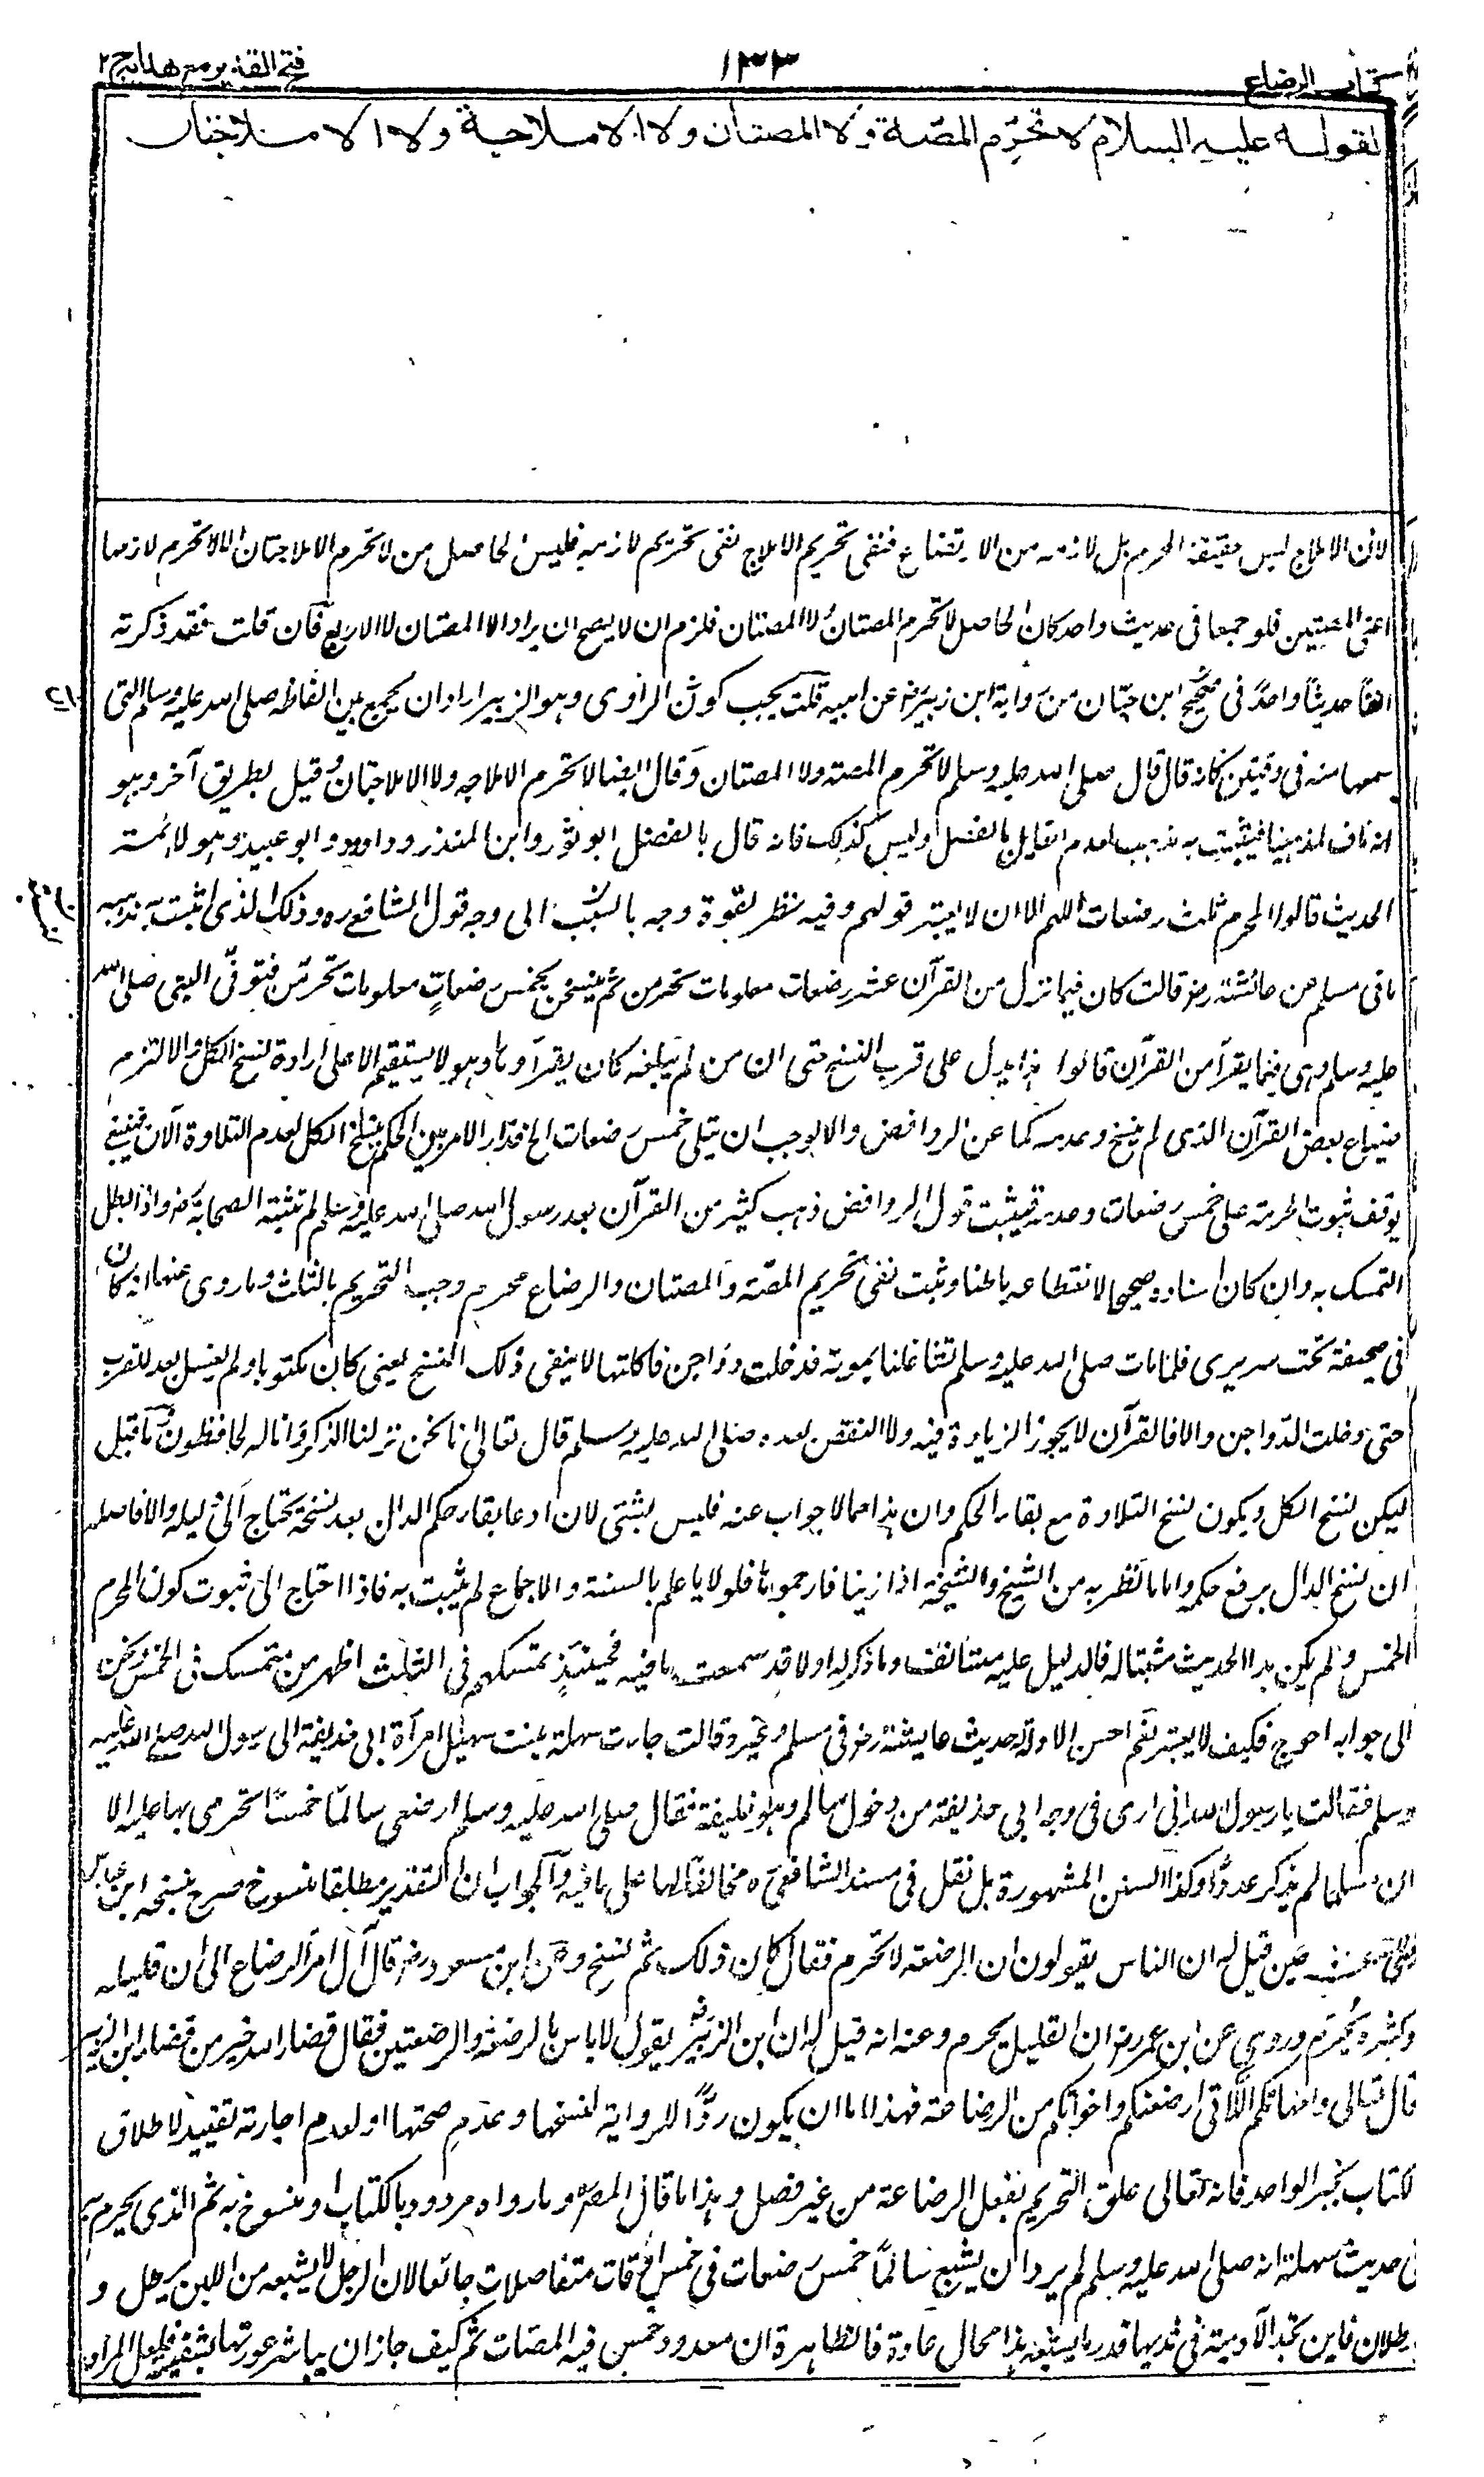 كتاب الرضاع
١٣٣
فتح القدير مع هدايه ج ٢
لقوله عليه السلام لا تحرم المصة ولا المصتان ولا الاملاجة ولا الاملاجتان
لان الاملاج ليس حقيقة المحرم بل لازمه من الارتضاع فنفى تحريم الاملاج نفى تحريم لازمه فليس الحاصل من لا تحرم الاملاجتان الا لا تحرم لازمها
اعنى المصتين فلو جمعا فى حديث واحد كان الحاصل لا تحرم المصتان ولا المصتان فلزم ان لا يصح ان يراد الا المصتان لا الاربع فان قلت فقد ذكرته
ايضا حديثا واحدا فى صحيح ابن حبان من رواية ابن زبير رض عن ابيه قلت يجب كون الراوى وهو الزبير اراد ان يجمع بين الفاظه صلى الله عليه وسلم التى
سمعها منه فى وقتين كانه قال قال صلى الله عليه وسلم لا تحرم المصة ولا المصتان وقال ايضا لا تحرم الاملاجه ولا الاملاجتان وقيل بطريق آخر وهو
انه ناف لمذهبنا فيثبت به مذهبه لعدم القائل بالفصل وليس كذلك فانه قال بالفصل ابو ثور وابن المنذر وداود وابو عبيد وهولا ائمة
الحديث قالوا المحرم ثلث رضعات اللهم الا ان لا يعتبر قولهم وفيه نظر لقوة وجهه بالنسبة الى وجه قول الشافعى ره وذلك الذى اثبت به مذهبه
ما فى مسلم عن عائشة رض قالت كان فيما نزل من القرآن عشر رضعات معلومات تحرمن ثم نسخن بخمس رضعات معلومات تحرمن فتوفى النبى صلى الله
عليه وسلم وهى فيما يقرأ من القرآن قالوا هذا يدل على قرب النسخ حتى ان من لم يبلغه كان يقرأوها وهو لا يستقيم الا على ارادة نسخ الكل والا لزم
ضياع بعض القرآن الذى لم ينسخ وعدمه كما عن الروافض والا لوجب ان يتلى خمس رضعات الخ فدار الامر بين الحكم بنسخ الكل لعدم التلاوة الآن فينتفى
توقف ثبوت الحرمة على خمس رضعات وعدمه فيثبت قول الروافض ذهب كثير من القرآن بعد رسول الله صلى الله عليه وسلم لم تثبته الصحابة رض واذا بطل
التمسك به وان كان اسناده صحيحا لانقطاعه باطنا وثبت نفى تحريم المصة والمصتان والرضاع محرم وجب التحريم بالثلث وما روى عنها انه كان
فى صحيفة تحت سريرى فلما مات صلى الله عليه وسلم تشاغلنا بموته فدخلت دواجن فاكلتها لا ينفى ذلك النسخ يعنى كان مكتوبا ولم يغسل بعد للقرب
حتى دخلت الدواجن والا فالقرآن لا يجوز الزيادة فيه ولا النقص بعده صلى الله عليه وسلم قال تعالى انا نحن نزلنا الذكر وانا له لحافظون فما قيل
ليكن نسخ الكل ويكون نسخ التلاوة مع بقاء الحكم وان هذا مما لا جواب عنه فليس بشئى لان ادعا بقاء حكم الدال بعد نسخه يحتاج الى دليل والا فالاصل
ان نسخ الدال يرفع حكمه واما ما نظر به من الشيخ والشيخة اذا زنيا فارجموهما فلولا ما علم بالسنة والاجماع لم يثبت به فاذا احتاج الى ثبوت كون المحرم
الخمس ولم يكن هذا الحديث مثبتا له فالدليل عليه مستأنف وما ذكر له اولا قد سمعت ما فيه فحينئذ تمسكهم فى الثلث اظهر من متمسك فى الخمس ونحن
الى جوابه احوج فكيف لا يعتبر نعم احسن الادلة حديث عايشة رض فى مسلم وغيره قالت جاءت سهلة بنت سهيل امرأة ابى حذيفة الى رسول الله صلى الله عليه
وسلم فقالت يا رسول الله انى ارى فى وجه ابى حذيفة من دخول سالم وهو حليفه فقال صلى الله عليه وسلم ارضعى سالما خمسا تحرمى بها عليه الا
ان مسلما لم يذكر عددا وكذا السنن المشهورة بل نقل فى مسند الشافعى ره مخالفا لها على ما فيه والجواب ان التقدير مطلقا منسوخ صرح بنسخه ابن عباس
حين قيل له ان الناس يقولون ان الرضعة لا تحرم فقال كان ذلك ثم نسخ وعن ابن مسعود رض قال آل امر الرضاع الى ان قليله
وكثيره يحرم وروى عن ابن عمر رض ان القليل يحرم وعنه انه قيل له ان ابن الزبير رض يقول لا باس بالرضعة والرضعتين فقال قضاء الله خير من قضاء ابن الزبير
قال تعالى وامهاتكم اللاتى ارضعنكم واخواتكم من الرضاعة فهذا اما ان يكون ردا للرواية لنسخها وعدم صحتها او لعدم اجازته تقييد لاطلاق
الكتاب بخبر الواحد فانه تعالى علق التحريم بفعل الرضاعة من غير فصل وهذا ما قال المصره وما رواه مردود بالكتاب او منسوخ به ثم الذى يجزم به
فى حديث سهلة انه صلى الله عليه وسلم لم يرد ان يشبع سالما خمس رضعات فى خمس اوقات متفاصلات جائعا لان الرجل لا يشبعه من اللبن رطل و
رطلان فاين تجد الآدمية فى ثديها قدر ما يشبعه هذا محال عادة فالظاهرة ان معدود خمس فيه المصات ثم كيف جاز ان يباشر عورتها بشفتيه فلعل المراد